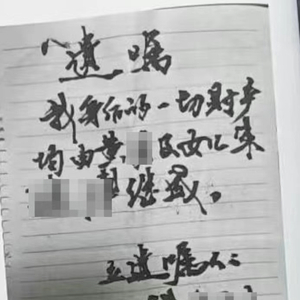 遗嘱
我身后的一切财产
均由黄 及女儿宋
继承。
立遗嘱人: